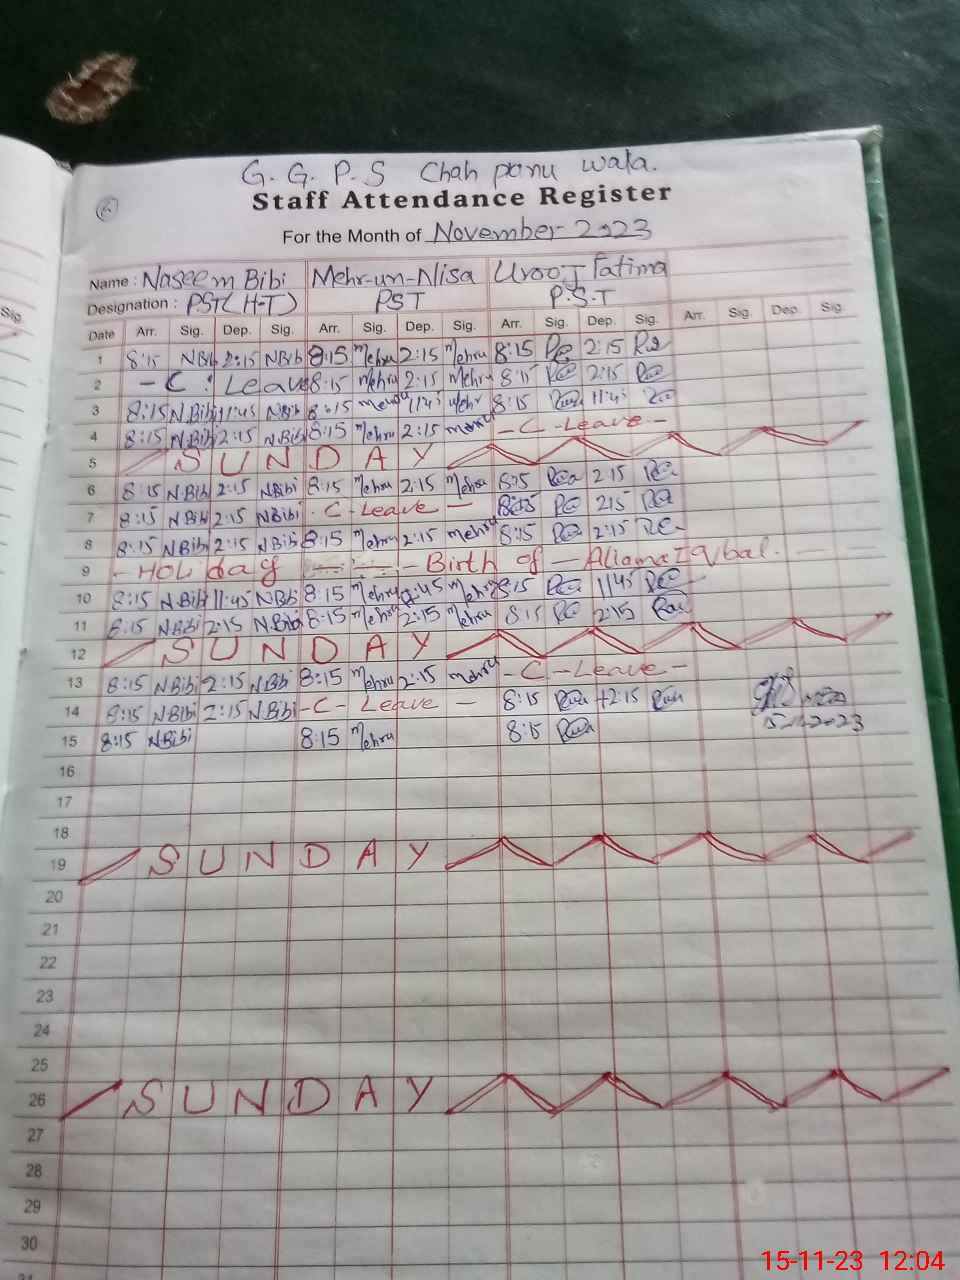 G. G. P. S Chah panu wala.
Staff Attendance Register
For the Month of November 2023
Name : Naseem Bibi Mehr-un-Nisa Urooj Fatima
Designation : PST(H-T) PST P.S.T
Sig.
Date Arr. Sig. Dep. Sig. Arr. Sig. Dep. Sig. Arr. Sig. Dep. Sig. Arr. Sig. Dep. Sig.
1 8:15 NBib 2:15 NBib 8:15 Mehru 2:15 Mehru 8:15 2:15
2 - C : Leave 8:15 Mehru 2:15 Mehru 8:15 2:15
3 8:15 N.Bibi 11:45 NBib 8:15 Mehru 11:45 Mehr 8:15 11:45
4 8:15 N.Bibi 2:15 NBibi 8:15 Mehru 2:15 Mehru - C - Leave -
5 SUNDAY
6 8:15 N.Bibi 2:15 NBibi 8:15 Mehru 2:15 Mehru 8:15 2:15
7 8:15 NBibi 2:15 NBibi - C - Leave - 8:15 2:15
8 8:15 NBibi 2:15 NBibi 8:15 Mehru 2:15 Mehru 8:15 2:15
9 - HOLiday - Birth of - Allama Iqbal. -
10 8:15 NBibi 11:45 NBibi 8:15 Mehru 11:45 Mehru 8:15 11:45
11 8:15 NBibi 2:15 NBibi 8:15 Mehru 2:15 Mehru 8:15 2:15
12 SUNDAY
13 8:15 NBibi 2:15 NBibi 8:15 Mehru 2:15 Mehru - C - Leave -
14 8:15 NBibi 2:15 NBibi - C - Leave - 8:15 2:15
15 8:15 NBibi 8:15 Mehru 8:15
15-11-2023
16
17
18
19 SUNDAY
20
21
22
23
24
25
26 SUNDAY
27
28
29
30
31
15-11-23 12:04